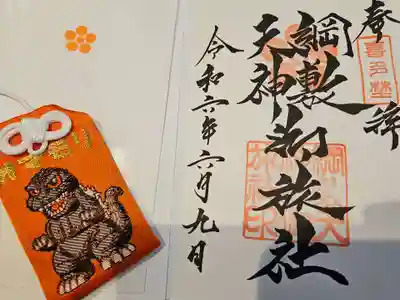 奉拝
喜多埜
綱敷
天神
御旅社
令和六年六月九日